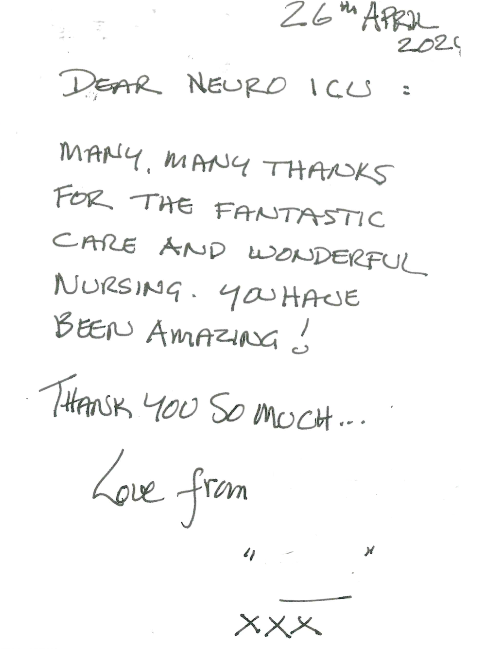 26th APRIL
DEAR NEURO ICU :
MANY, MANY THANKS
FOR THE FANTASTIC
CARE AND WONDERFUL
NURSING. YOU HAVE
BEEN AMAZING!
THANK YOU SO MUCH...
Love from
" "
XXX